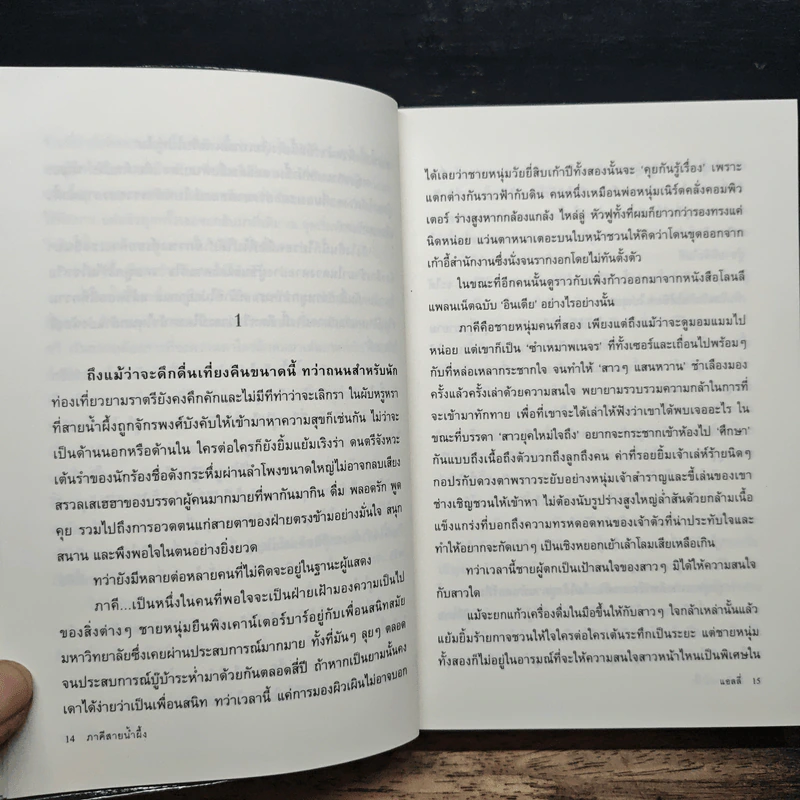 1
ถึงแม้ว่าจะดึกดื่นเที่ยงคืนขนาดนี้ ทว่าถนนสำหรับนัก
ท่องเที่ยวยามราตรียังคงคึกคักและไม่มีทีท่าว่าจะเลิกรา ในผับหรูหรา
ที่สายน้ำผึ้งถูกจักรพงศ์บังคับให้เข้ามาหาความสุขก็เช่นกัน ไม่ว่าจะ
เป็นด้านนอกหรือด้านใน ใครต่อใครก็ยังยิ้มแย้มเริงร่า ดนตรีจังหวะ
เต้นรำของนักร้องชื่อดังกระหึ่มผ่านลำโพงขนาดใหญ่ไม่อาจกลบเสียง
สรวลเสเฮฮาของบรรดาผู้คนมากมายที่พากันมากิน ดื่ม พลอดรัก พูด
คุย รวมไปถึงการอวดตนแก่สายตาของฝ่ายตรงข้ามอย่างมั่นใจ สนุก
สนาน และพึงพอใจในตนอย่างยิ่งยวด
ทว่ายังมีหลายต่อหลายคนที่ไม่คิดจะอยู่ในฐานะผู้แสดง
ภาคี...เป็นหนึ่งในคนที่พอใจจะเป็นฝ่ายเฝ้ามองความเป็นไป
ของสิ่งต่างๆ ชายหนุ่มยืนพิงเคาน์เตอร์บาร์อยู่กับเพื่อนสนิทสมัย
มหาวิทยาลัยซึ่งเคยผ่านประสบการณ์มากมาย ทั้งที่มันๆ ลุยๆ ตลอด
จนประสบการณ์บู๊บ้าระห่ำมาด้วยกันตลอดสี่ปี ถ้าหากเป็นยามนั้นคง
เดาได้ง่ายว่าเป็นเพื่อนสนิท ทว่าเวลานี้ แค่การมองผิวเผินไม่อาจบอก
14 ภาคีสายน้ำผึ้ง
ได้เลยว่าชายหนุ่มวัยยี่สิบเก้าปีทั้งสองนั้นจะ 'คุยกันรู้เรื่อง' เพราะ
แตกต่างกันราวฟ้ากับดิน คนหนึ่งเหมือนพ่อหนุ่มเนิร์ดคลั่งคอมพิว
เตอร์ ร่างสูงหากกล้องแกล้ง ไหล่ลู่ หัวฟูทั้งที่ผมก็ยาวกว่ารองทรงแค่
นิดหน่อย แว่นตาหนาเตอะบนใบหน้าชวนให้คิดว่าโดนขุดออกจาก
เก้าอี้สำนักงานซึ่งนั่งจนรากงอกโดยไม่ทันตั้งตัว
ในขณะที่อีกคนนั้นดูราวกับเพิ่งก้าวออกมาจากหนังสือโลนลี
แพลนเน็ตฉบับ 'อินเดีย' อย่างไรอย่างนั้น
ภาคีคือชายหนุ่มคนที่สอง เพียงแต่ถึงแม้ว่าจะดูมอมแมมไป
หน่อย แต่เขาก็เป็น 'ซำเหมาพเนจร' ที่ทั้งเซอร์และเถื่อนไปพร้อมๆ
กับที่หล่อเหลากระชากใจ จนทำให้ 'สาวๆ แสนหวาน' ชำเลืองมอง
ครั้งแล้วครั้งเล่าด้วยความสนใจ พยายามรวบรวมความกล้าในการที่
จะเข้ามาทักทาย เพื่อที่เขาจะได้เล่าให้ฟังว่าเขาได้พบเจออะไร ใน
ขณะที่บรรดา 'สาวยุคใหม่ใจถึง' อยากจะกระชากเข้าห้องไป 'ศึกษา'
กันแบบถึงเนื้อถึงตัวบวกถึงลูกถึงคน ค่าที่รอยยิ้มเจ้าเล่ห์ร้ายนิดๆ
กอปรกับดวงตาพราวระยับอย่างหนุ่มเจ้าสำราญและขี้เล่นของเขา
ช่างเชิญชวนให้เข้าหา ไม่ต้องนับรูปร่างสูงใหญ่ล่ำสันด้วยกล้ามเนื้อ
แข็งแกร่งที่บอกถึงความทรหดอดทนของเจ้าตัวที่น่าประทับใจและ
ทำให้อยากจะกัดเบาๆ เป็นเชิงหยอกเย้าเล้าโลมเสียเหลือเกิน
ทว่าเวลานี้ชายผู้ตกเป็นเป้าสนใจของสาวๆ มิได้ให้ความสนใจ
กับสาวใด
แม้จะยกแก้วเครื่องดื่มในมือขึ้นให้กับสาวๆ ใจกล้าเหล่านั้นแล้ว
แย้มยิ้มร้ายกาจชวนให้ใจใครต่อใครเต้นระทึกเป็นระยะ แต่ชายหนุ่ม
ทั้งสองก็ไม่อยู่ในอารมณ์ที่จะให้ความสนใจสาวหน้าไหนเป็นพิเศษใน
แอลลี่ 15